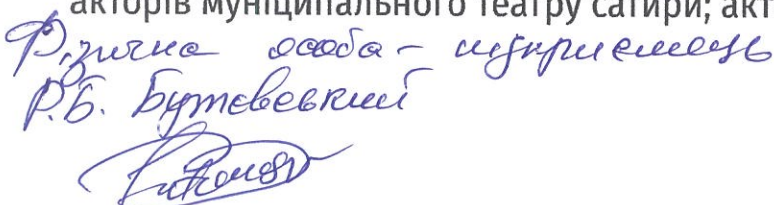 акторів муніципального театру сатири; акт
Фізична особа – підприємець
Р.Б. Бутєвський